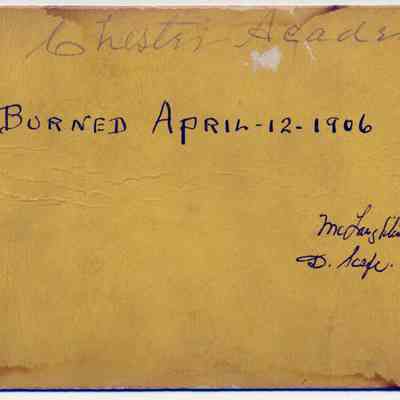 Chester Acade
BURNED APRIL-12-1906
McLaughlin
D.